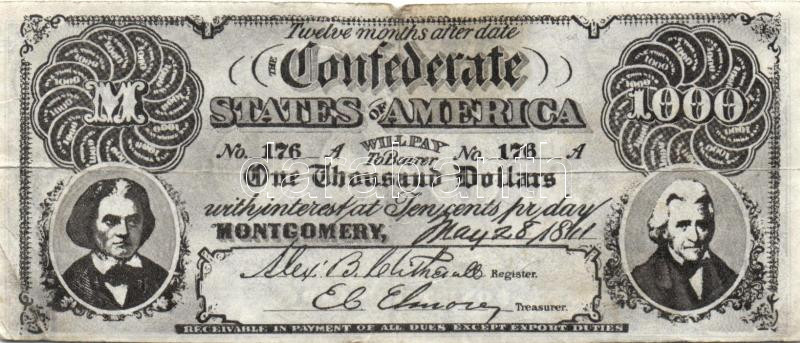 Twelve months after date
THE Confederate
STATES OF AMERICA
M
1000
No. 176 A WILL PAY To Bearer No. 176 A
One Thousand Dollars
with interest at Ten cents pr day
MONTGOMERY, May 28, 1861
Alex B. Clitherall Register.
E C Elmore Treasurer.
RECEIVABLE IN PAYMENT OF ALL DUES EXCEPT EXPORT DUTIES
darabanth